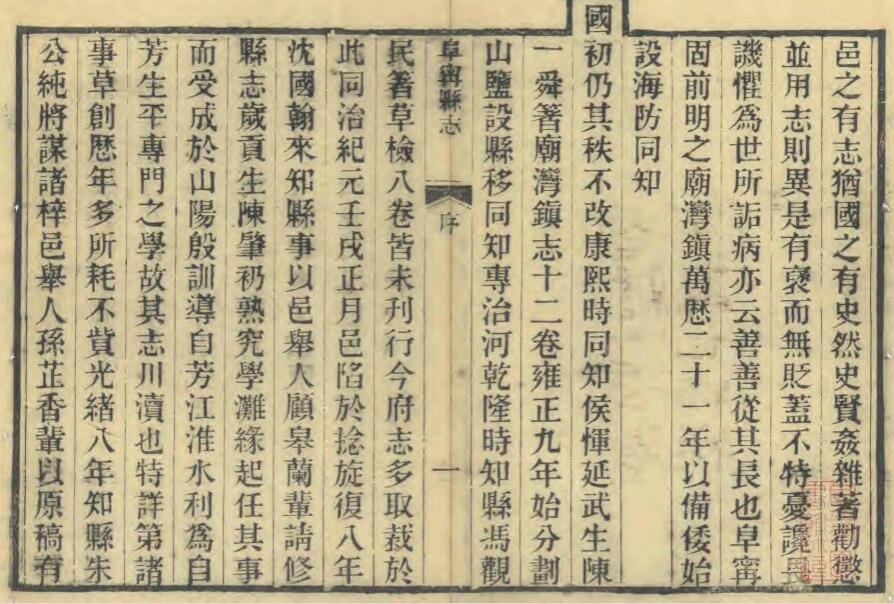 邑之有志猶國之有史然史賢姦雜著勸懲
並用志則異是有襃而無貶蓋不特憂讒畏
譏懼爲世所詬病亦云善善從其長也阜寗
固前明之廟灣鎮萬歴二十一年以備倭始
設海防同知
國初仍其秩不改康熙時同知侯惲延武生陳
一舜著廟灣鎮志十二卷雍正九年始分劃
山鹽設縣移同知專治河乾隆時知縣馮觀
阜寗縣志
序
一
民著草檢八卷皆未刊行今府志多取裁於
此同治紀元壬戌正月邑陷於捻旋復八年
沈國翰來知縣事以邑舉人顧皋蘭輩請修
縣志歲貢生陳肇礽熟究學灘緣起任其事
而受成於山陽殷訓導自芳江淮水利爲自
芳生平專門之學故其志川瀆也特詳第諸
事草創歴年多所耗不貲光緒八年知縣朱
公純將謀諸梓邑舉人孫芷香輩以原稿有